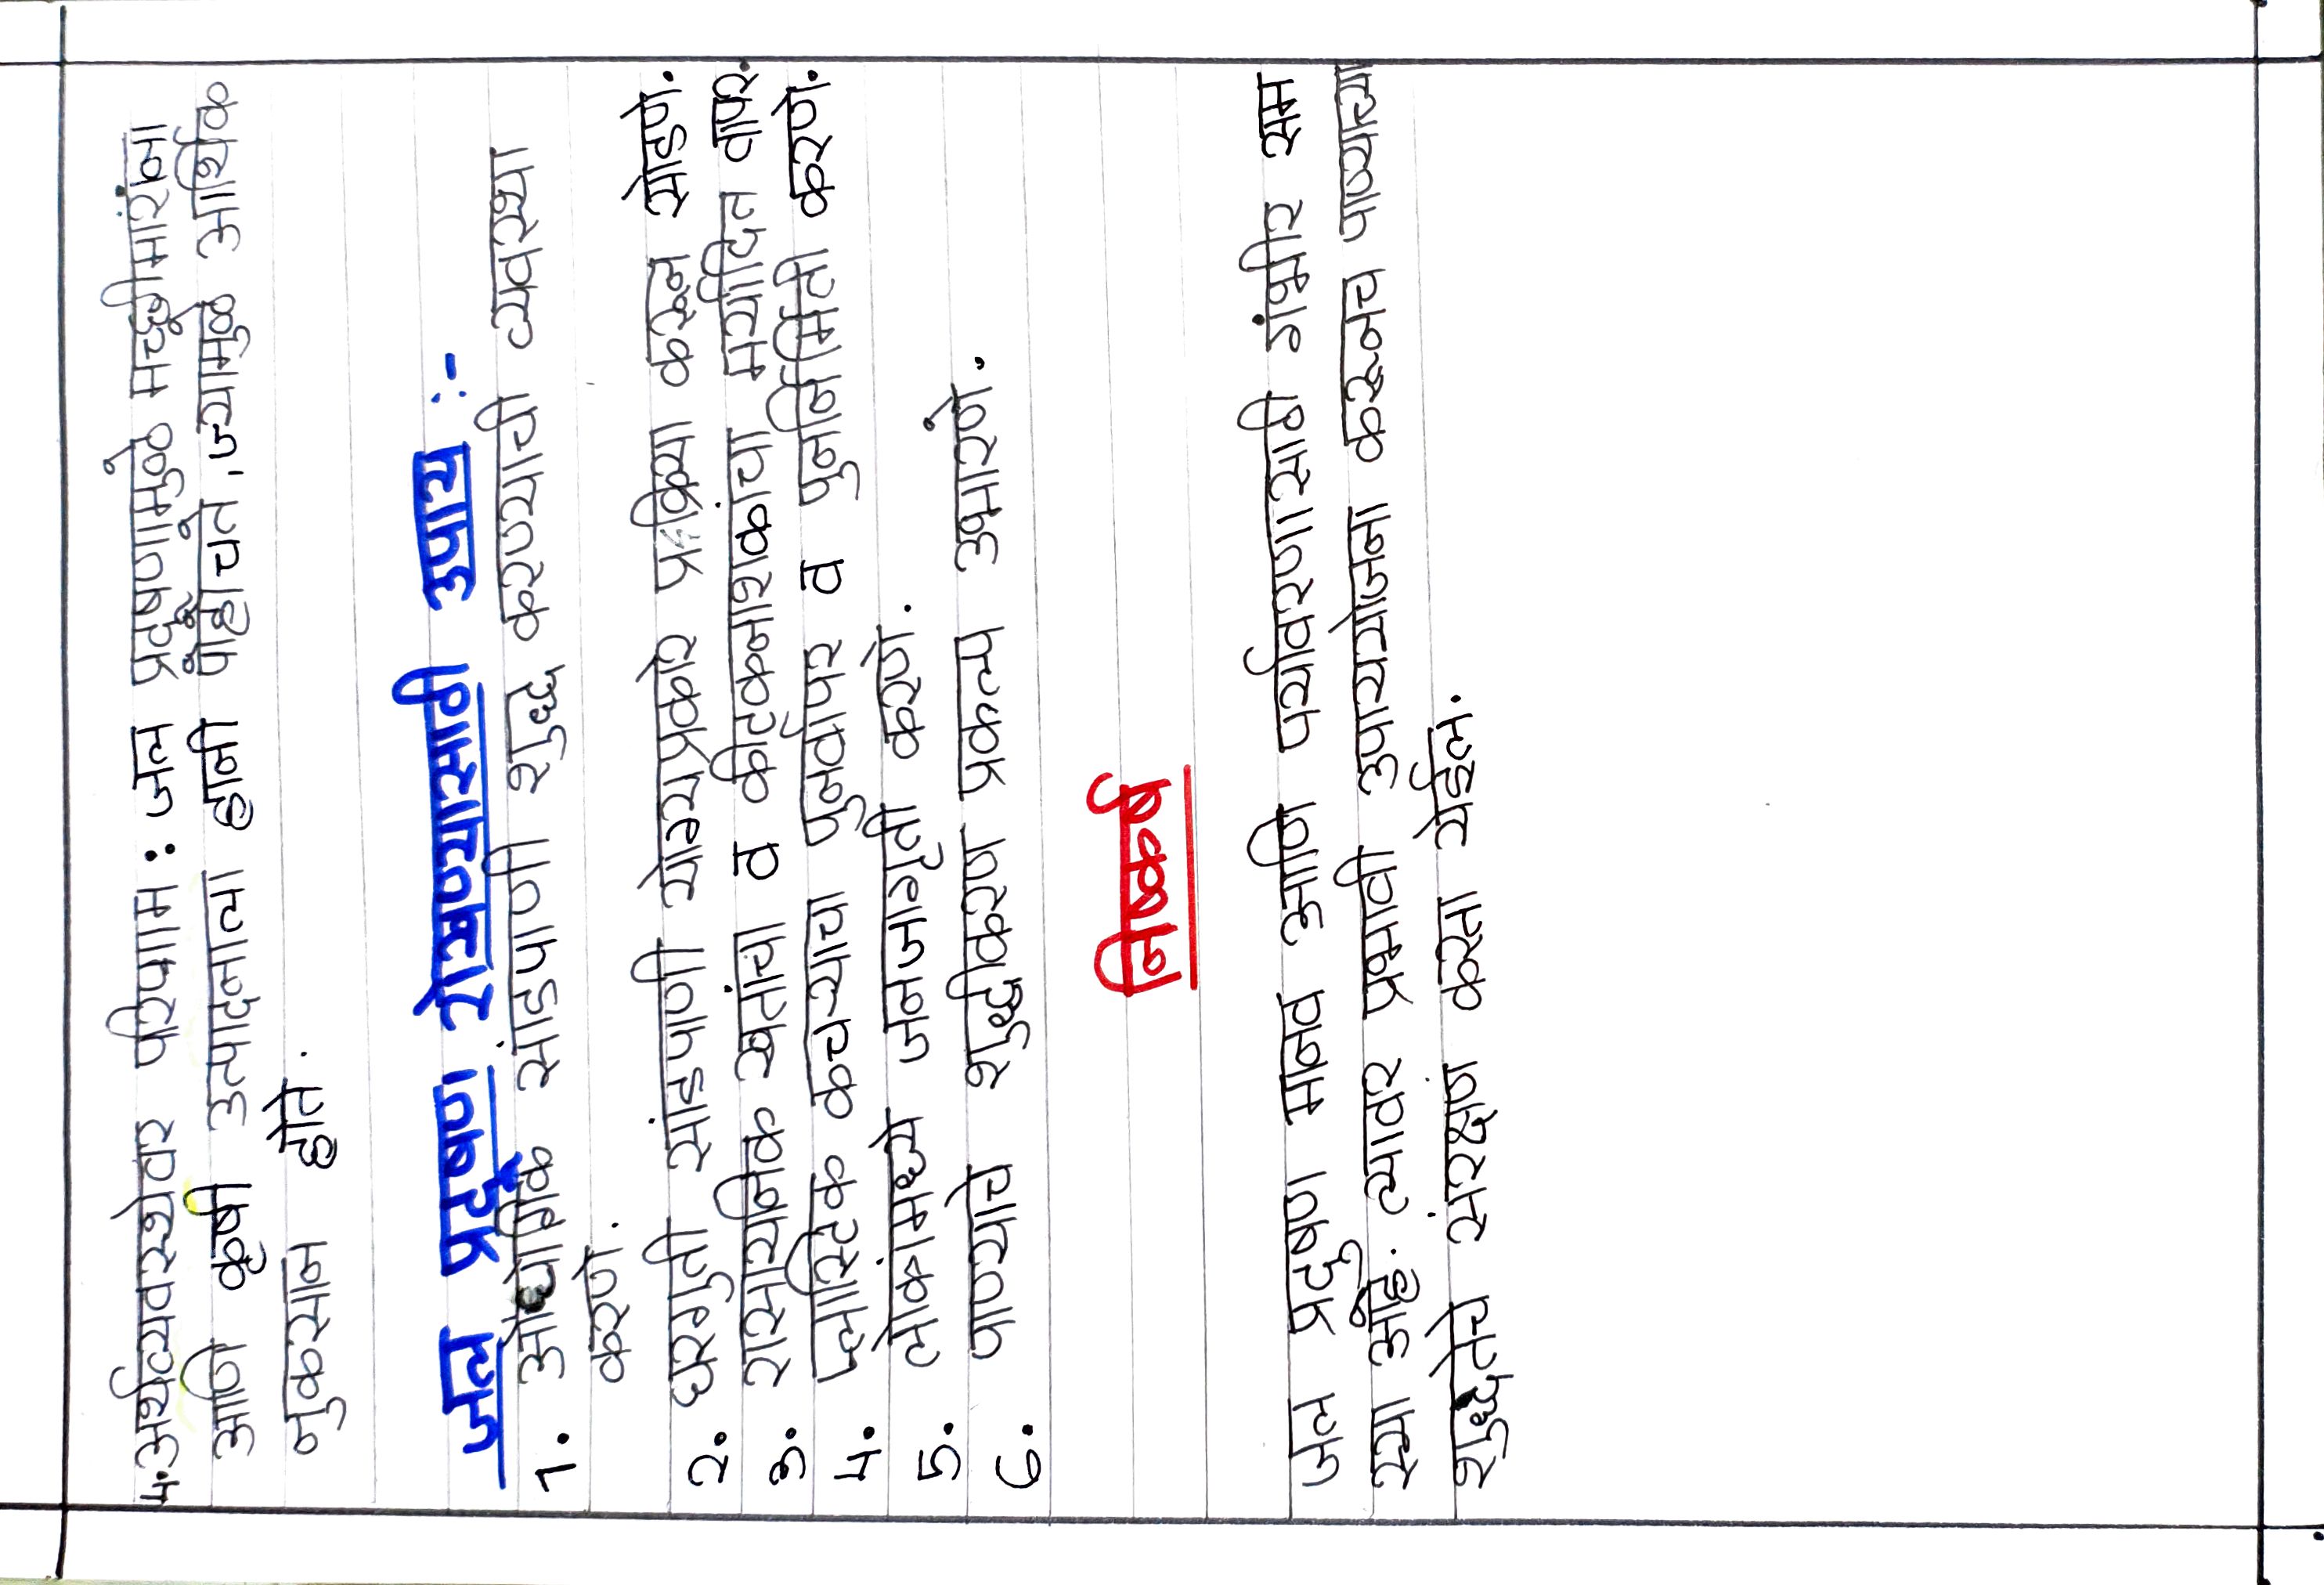 4. अर्थव्यवस्थेवर परिणाम : जल प्रदूषणामुळे मच्छीमारांना
आणि कृषी उत्पादनाला हानी पोहोचते, ज्यामुळे आर्थिक
नुकसान होते.
जल प्रदूषण रोखण्यासाठी उपाय :-
1. औद्योगिक सांडपाणी शुद्ध करण्याची व्यवस्था
करणे.
2. घरगुती सांडपाणी योग्यप्रकारे प्रक्रिया करून सोडणे.
3. रासायनिक खतांचा व कीटकनाशकांचा मर्यादित वापर.
4. प्लास्टिक कचऱ्याचा पुनर्वापर व पुनर्निर्मिती करणे.
5. लोकांमध्ये जनजागृती करणे.
6. पाण्याचे शुद्धीकरण प्रकल्प उभारणे.
निष्कर्ष
जल प्रदुषण मानव आणि पर्यावरणासाठी गंभीर सम
स्या आहे. त्यावर प्रभावी उपाययोजना करूनच पाण्याच्या
शुद्धतेचे संरक्षण करता येईल.